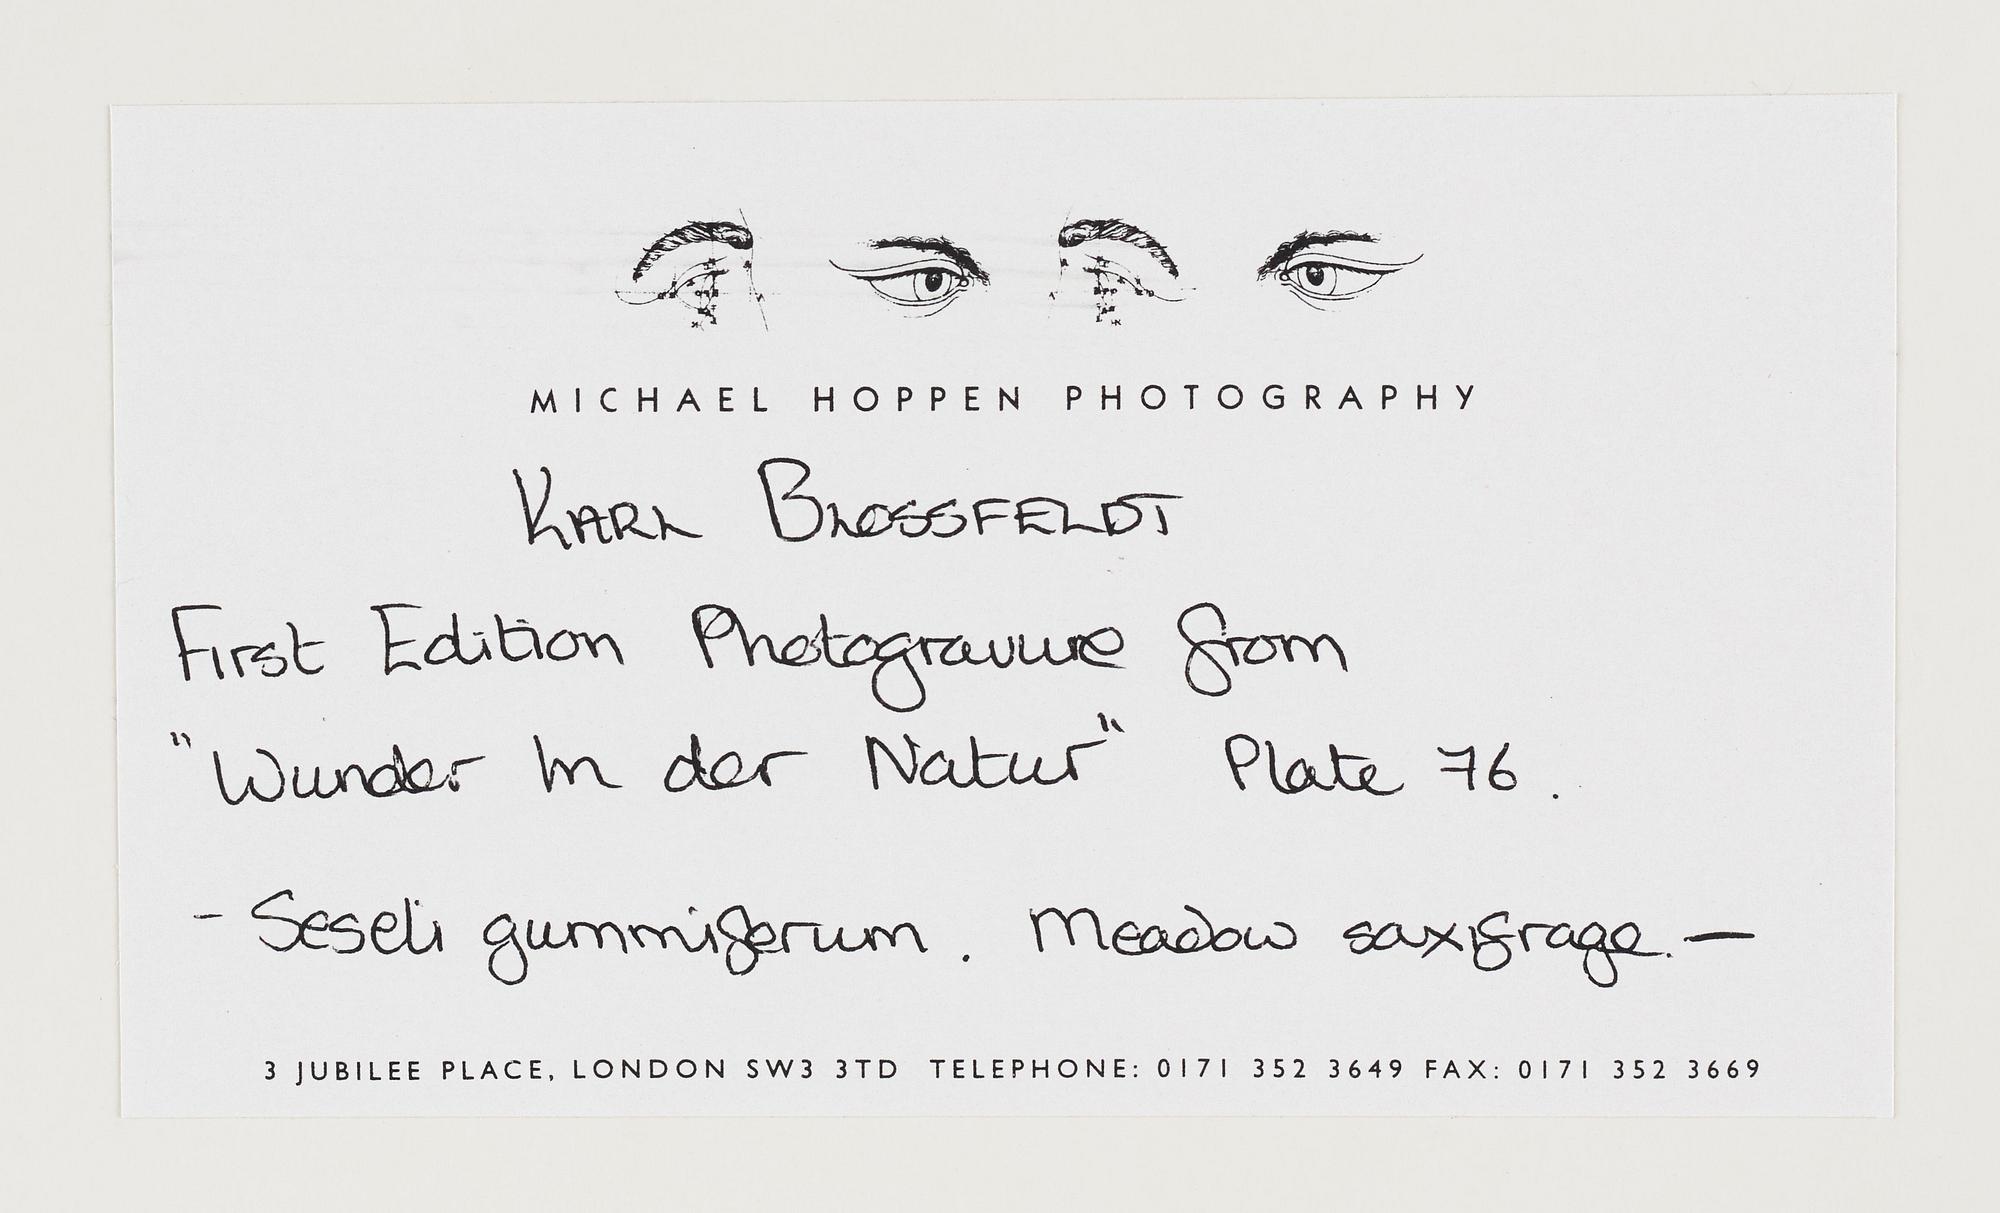 MICHAEL HOPPEN PHOTOGRAPHY
KARL BLOSSFELDT
First Edition Photogravure from
"Wunder in der Natur" Plate 76.
- Seseli gummiferum. Meadow saxifrage. —
3 JUBILEE PLACE, LONDON SW3 3TD TELEPHONE: 0171 352 3649 FAX: 0171 352 3669